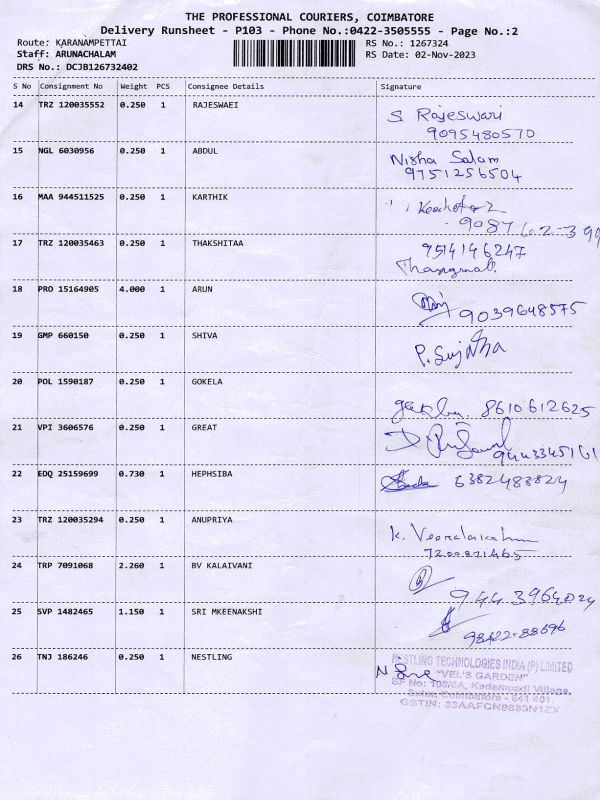 THE PROFESSIONAL COURIERS, COIMBATORE
Delivery Runsheet - P103 - Phone No.:0422-3505555 - Page No.:2
Route: KARANAMPETTAI RS No.: 1267324
Staff: ARUNACHALAM RS Date: 02-Nov-2023
DRS No.: DCJB126732402
S No Consignment No Weight PCS Consignee Details Signature
14 TRZ 120035552 0.250 1 RAJESWAEI
S Rajeswari
9095480570
15 NGL 6030956 0.250 1 ABDUL
Nisha Salam
9751256504
16 MAA 944511525 0.250 1 KARTHIK
17 TRZ 120035463 0.250 1 THAKSHITAA
9514146247
18 PRO 15164905 4.000 1 ARUN
9039648575
19 GMP 660150 0.250 1 SHIVA
P. Sujitha
20 POL 1590187 0.250 1 GOKELA
8610612625
21 VPI 3606576 0.250 1 GREAT
9443345161
22 EDQ 25159699 0.730 1 HEPHSIBA
6382483824
23 TRZ 120035294 0.250 1 ANUPRIYA
K.
7200871465
24 TRP 7091068 2.260 1 BV KALAIVANI
9443964024
25 SVP 1482465 1.150 1 SRI MKEENAKSHI
98422-88696
26 TNJ 186246 0.250 1 NESTLING
NESTLING TECHNOLOGIES INDIA (P) LIMITED
"VEL'S GARDEN"
SF No: 108/6A, Kadampadi Village,
Sulur, Coimbatore - 641 401.
GSTIN: 33AAFCN9835N1ZX